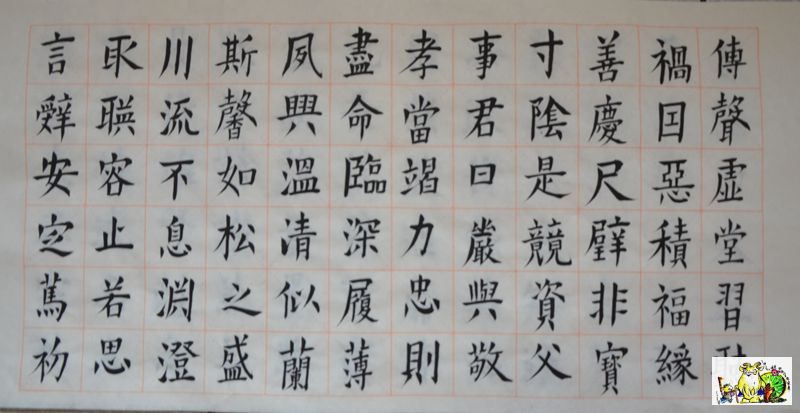 傳聲虛堂習
禍囙惡積福緣
善慶尺璧非寶
寸陰是競資父
事君曰嚴與敬
孝當竭力忠則
盡命臨深履薄
夙興溫清似蘭
斯馨如松之盛
川流不息淵澄
取暎容止若思
言辭安定篤初